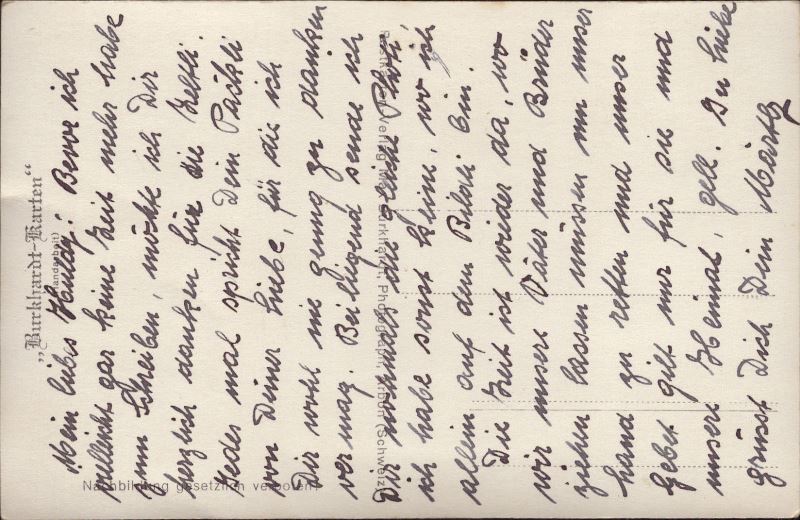 "Burkhardt-Karten"
(Handarbeit)
Mein liebes Hansy! Bevor ich
vielleicht gar keine Zeit mehr habe
zum Schreiben, möchte ich Dir
herzlich danken für die Zeltli.
Jedes mal spricht Dein Päckli
von Deiner Liebe, für die ich
Dir wohl nie genug zu danken
vermag. Beiliegend sende ich
Dir nochmals die gleiche
ich habe sonst keine, wo ich
allein auf dem Bildli bin.
Die Zeit ist wieder da, wo
wir unsere Väter und Brüder
ziehen lassen müssen um unser
Land zu retten und unser
Gebet gilt nur für sie und
unsere Heimat, gell. In Liebe
grüsst Dich Dein Märty
Burkhardt, Photograph, Arbon (Schweiz)
Nachbildung gesetzlich verboten!